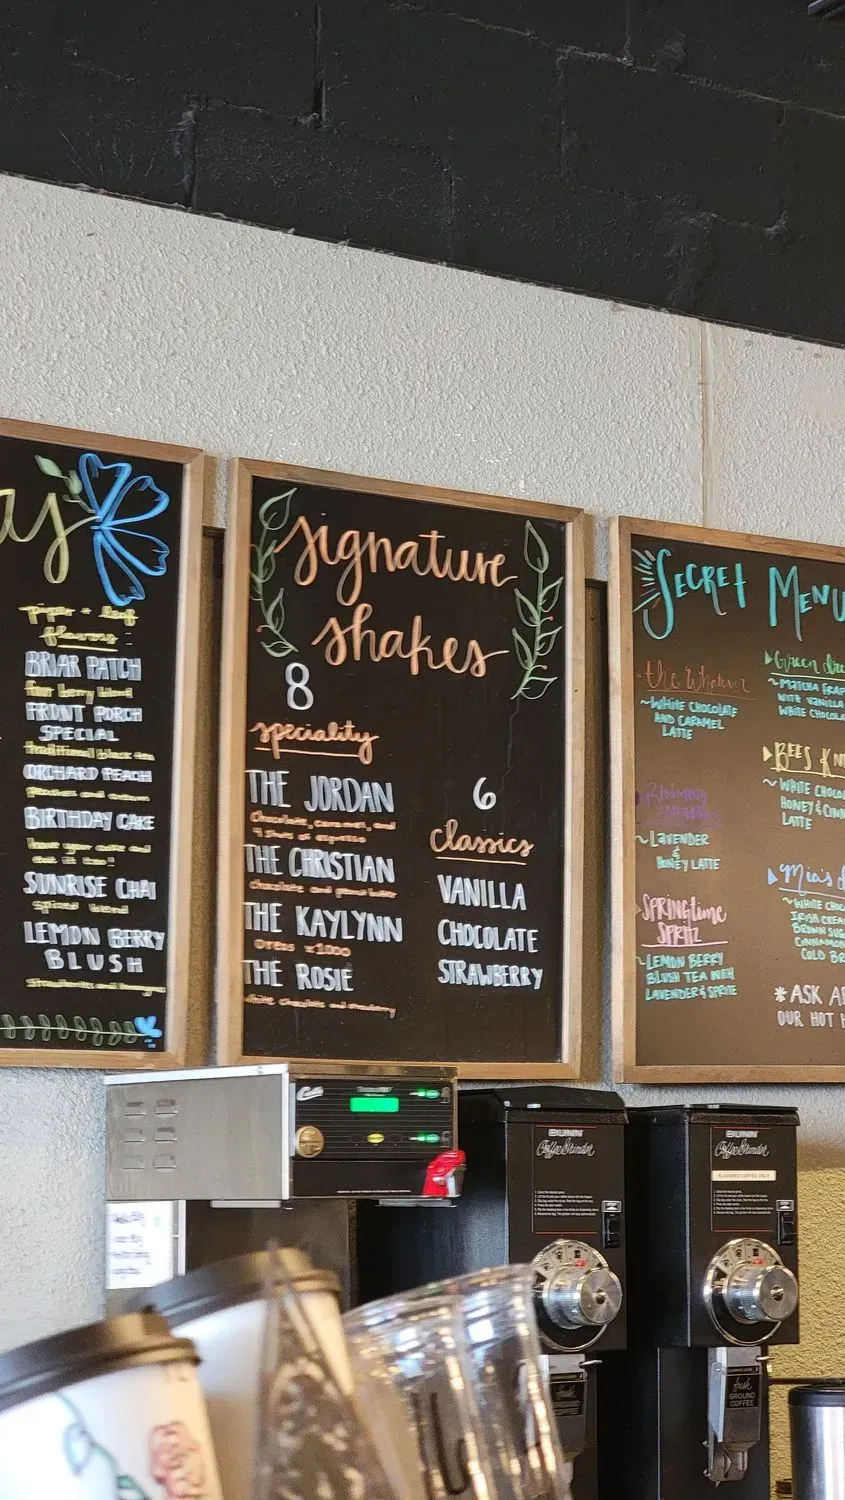 piper + leaf
flavors:
BRIAR PATCH
four berry blend
FRONT PORCH
SPECIAL
traditional black tea
ORCHARD PEACH
BIRTHDAY CAKE
have your cake and
eat it too!!
SUNRISE CHAI
spiced blend
LEMON BERRY
BLUSH
signature
shakes
8
speciality
THE JORDAN
Chocolate, caramel, and
4 shots of espresso
THE CHRISTIAN
chocolate and peanut butter
THE KAYLYNN
Oreos x1000
THE ROSIE
white chocolate and strawberry
6
classics
VANILLA
CHOCOLATE
STRAWBERRY
SECRET MENU
the Whatever
~WHITE CHOCOLATE
AND CARAMEL
LATTE
Blooming
~LAVENDER
&
HONEY LATTE
SPRINGtime
SPRITZ
~LEMON BERRY
BLUSH TEA WITH
LAVENDER & SPRITE
Green
~MATCHA FRAP
WITH VANILLA
WHITE CHOCOLA
BEES KN
~WHITE CHOCO
HONEY & CINN
LATTE
Mia's
~WHITE CHOC
IRISH CREA
BROWN SUG
CINNAMON
COLD BR
*ASK A
OUR HOT
Curtis
BUNN
Coffee Grinder
BUNN
Coffee Grinder
FLAVORED COFFEE ONLY
fresh
GROUND
COFFEE